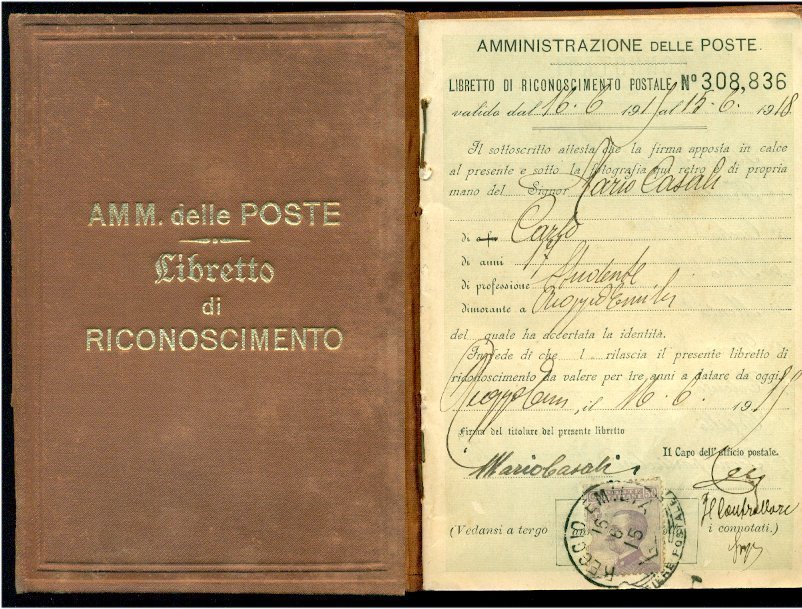 AMM. delle POSTE
Libretto
di
RICONOSCIMENTO
AMMINISTRAZIONE DELLE POSTE.
LIBRETTO DI RICONOSCIMENTO POSTALE Nº 308,836
valido dal 16-6 1915 al 15-6-1918
Il sottoscritto attesta che la firma apposta in calce
al presente e sotto la fotografia qui retro è di propria
mano del Signor Mario Casali
di Carlo
di anni 17
di professione Studente
dimorante a Reggio Emilia
del quale ha accertata la identità.
In fede di che l rilascia il presente libretto di
riconoscimento da valere per tre anni a datare da oggi.
Reggio Em, il 16-6-1915
Firma del titolare del presente libretto
Il Capo dell'ufficio postale.
Mario Casali
Il Controllore
(Vedansi a tergo i connotati.)
REGGIO EMILIA
16 6 15